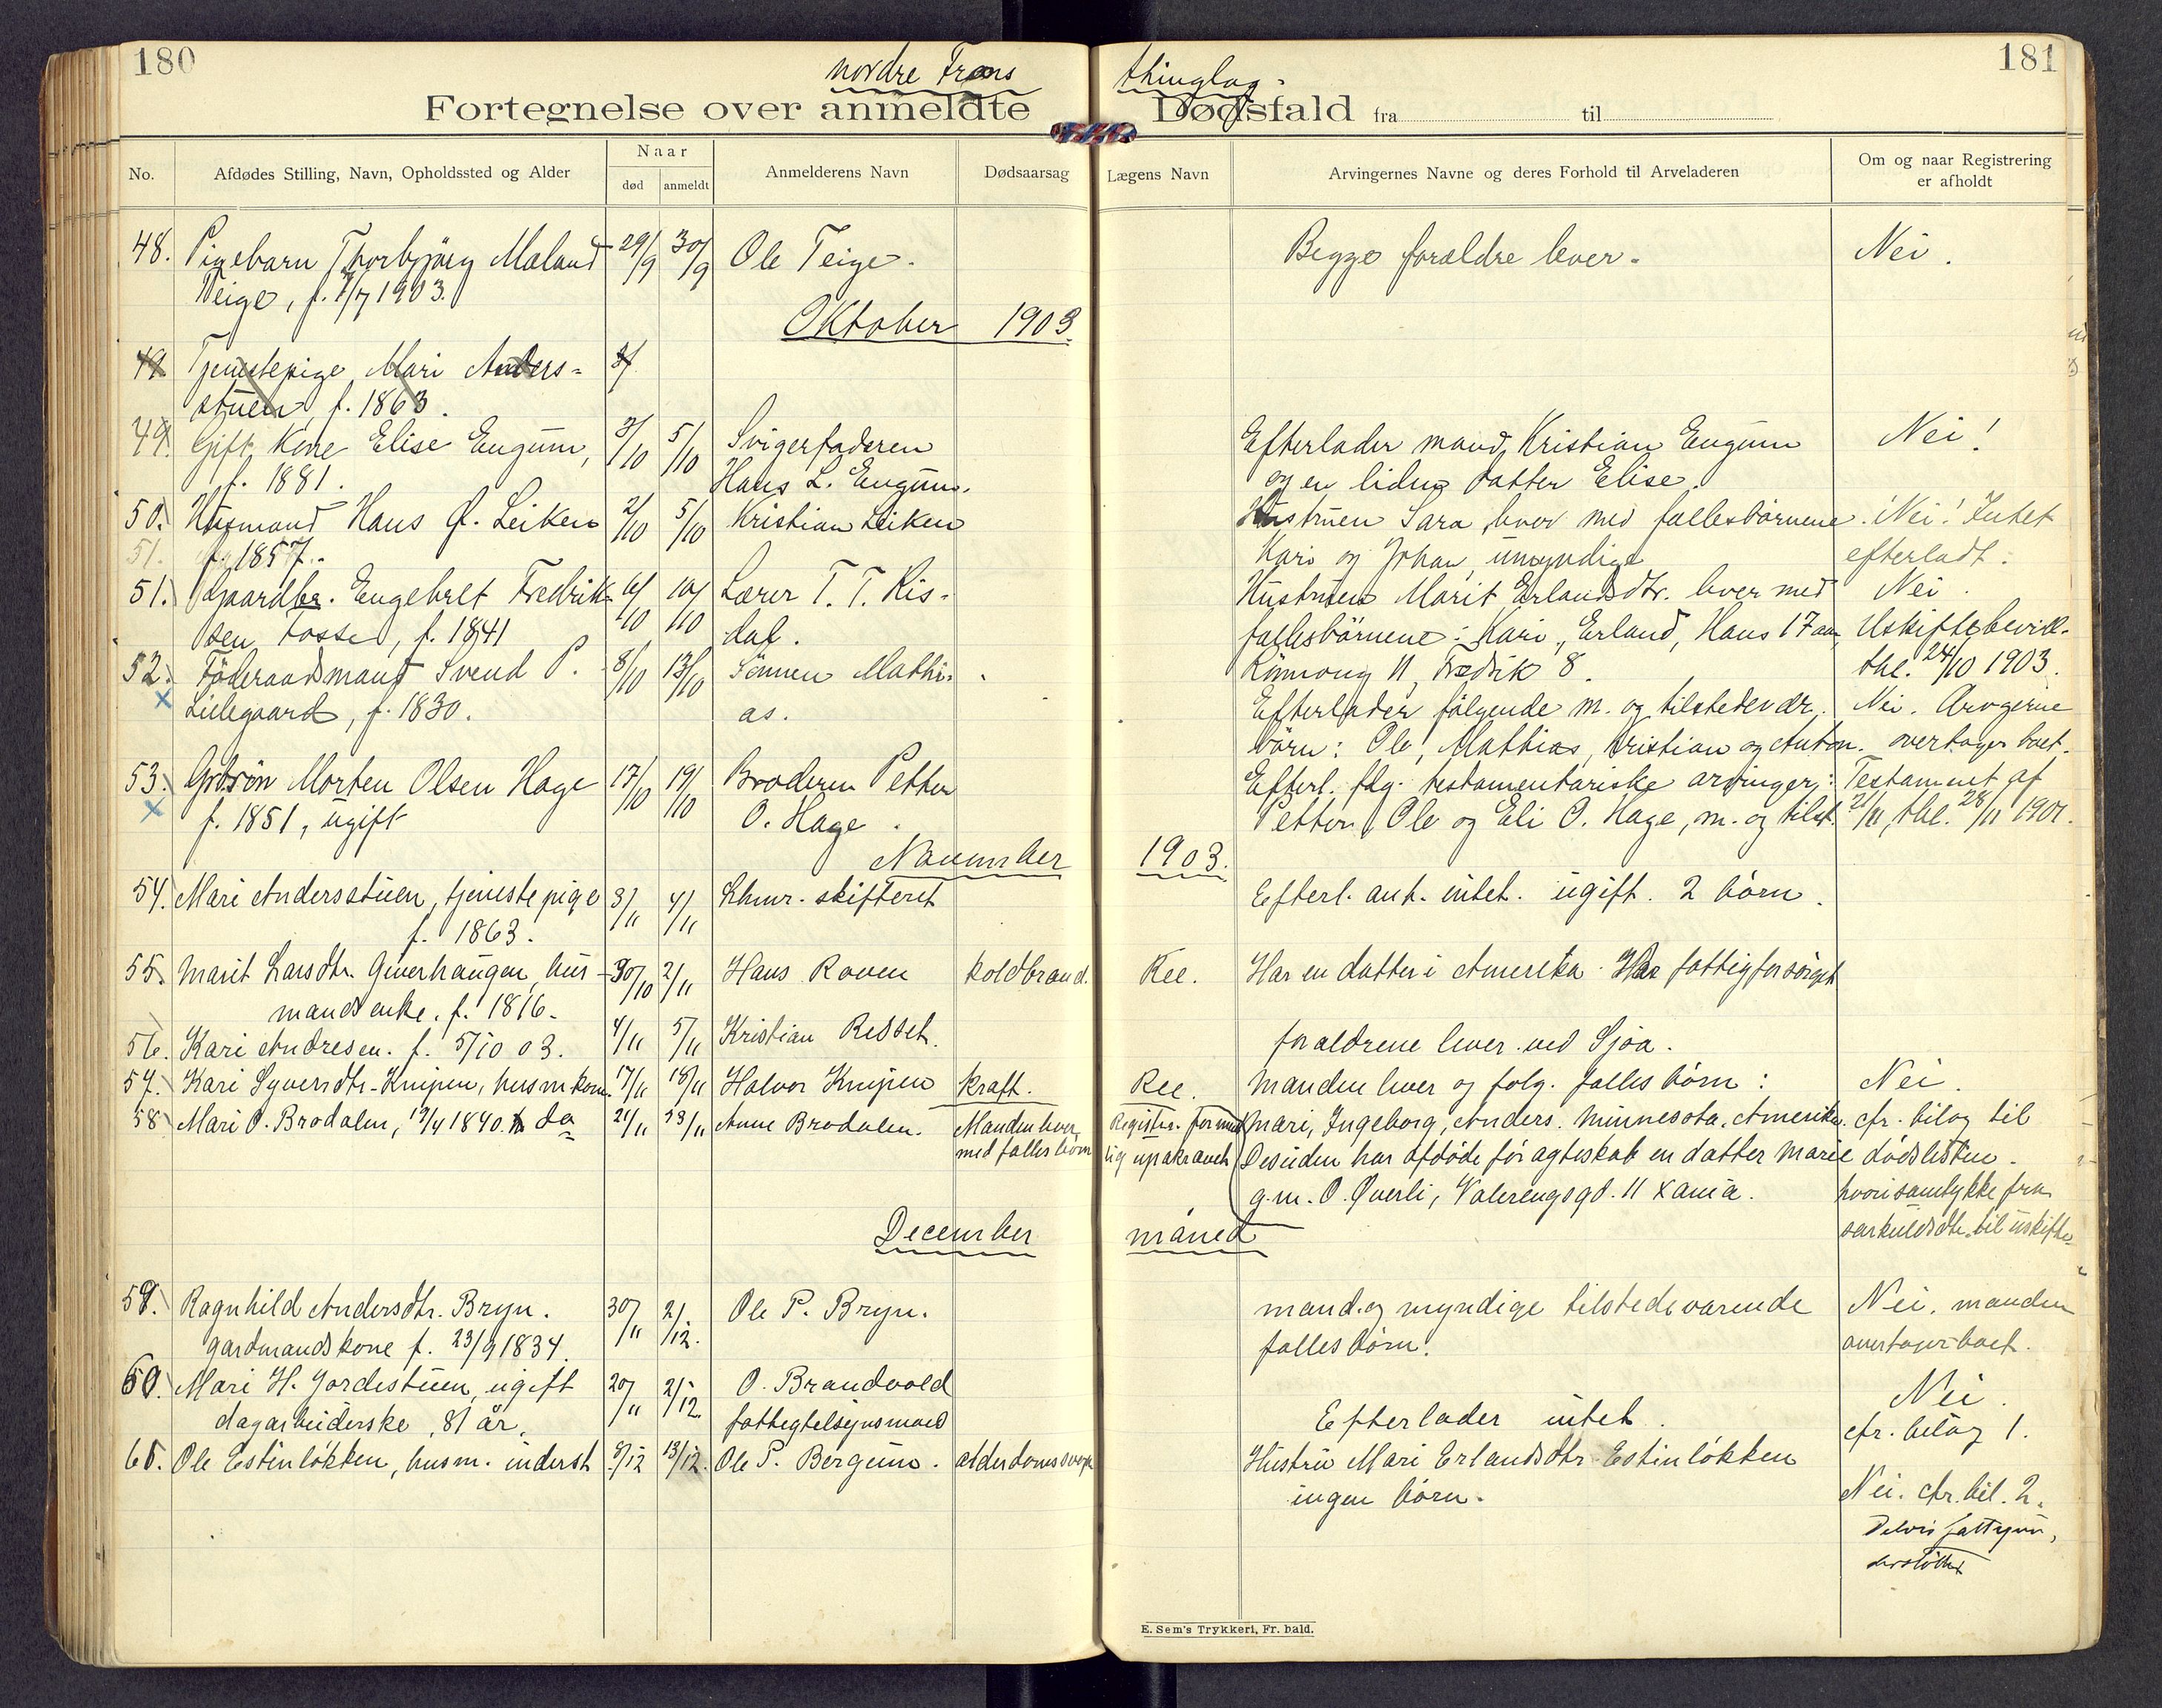 180
181
nordre Frons thinglag.
Fortegnelse over anmeldte Dødsfald fra til
No.
Afdødes Stilling, Navn, Opholdssted og Alder
Naar
død
anmeldt
Anmelderens Navn
Dødsaarsag
Lægens Navn
Arvingernes Navne og deres Forhold til Arveladeren
Om og naar Registrering
er afholdt
48. Pigebarn Thorbjörg Maland 29/9 30/9 Ole Teige. Begge forældre lever. Nei.
Teige, f. 7/7 1903.
Oktober 1903.
49. Tjenestepige Mari Anders=
stuen, f. 1863.
49. Gift Kone Elise Engum, 3/10 5/10 Svigerfaderen Efterlader mand, Kristian Engum Nei!
f. 1881. Hans L. Engum. og en liden datter Elise.
50. Husmand Hans O. Leiken 2/10 5/10 Kristian Leiken Hustruen Sara lever med fællesbörnene. Nei! Intet
51. f. 1857. Kari og Johan, umyndige efterladt.
51. Gaardbr. Engebret Fredrik- 6/10 10/10 Lærer T. T. Ris- Hustruen Marit Erlandsdtr. lever med Nei.
sen Fosse, f. 1841 dal. fællesbörnene: Kari, Erland, Hans 17 aar, Uskiftebevill.
52. Föderaadsmand Svend P. 8/10 13/10 Sönnen Mathi- Rönnoug 11, Fredrik 8. thl. 24/10 1903.
Lillegaard, f. 1830. as. Efterlader fölgende m. og tilstedevær. Nei. Arvgerne
börn: Ole, Mathias, Kristian og Anton. overtager boet.
53. Gbr.sön Morten Olsen Hage 17/10 19/10 Broderen Petter Efterl. flg. testamentariske arvinger: Testament af
f. 1851, ugift O. Hage. Petter, Ole og Eli O. Hage, m. og tilst. 21/11, thl. 28/11 1901.
November 1903.
54. Mari Andersstuen, tjenestepige 3/11 4/11 Lhmr. skifteret Efterl. ant. intet. ugift. 2 börn.
f. 1863.
55. Marit Larsdtr. Qverhaugen, hus- 30/10 2/11 Hans Roven Koldbrand. Ree. Har en datter i Amerika. Har fattigforsörget
mandsenke. f. 1816.
56. Kari Andresen. f. 5/10 03. 4/11 5/11 Kristian Risset. forældrene lever ved Sjoa.
57. Kari Syversdtr. Knipen, husm.kone. 17/11 18/11 Halvor Knipen Kræft. Ree. Manden lever og følg. fælles börn: Nei.
58 Mari O. Brodalen, 19/4 1840. do 21/11 23/11 Anne Brodalen. Manden lever Registr. forment Mari, Ingeborg, Anders. Minnesota. Amerika. cfr. bilag til
med fælles börn lig upåkrævet Desuden har afdøde før ægteskab en datter Marie dødslisten.
g.m. O. Øverli, Valerengsgd. 11 Xania. hvori samtykke fra
særkuldsdtr. til uskifte
December måned
59. Ragnhild Andersdtr. Bryn. 30/11 2/12. Ole P. Bryn. mand og myndige tilstedeværende Nei. manden
gardmandskone f. 23/9 1834. fælles börn. overtager boet.
60. Mari H. Jordestuen, ugift 20/11 2/12. O. Brandvold Nei.
dagarbeiderske, 81 år. fattigtilsynsmand Efterlader intet. cfr. bilag 1.
61. Ole Estinløkken, husm. inderst 8/12 13/12. Ole P. Bergum. alderdomssvagh. Hustru Mari Erlandsdtr. Estinløkken
ingen börn. Nei. cfr. bil. 2.
Delvis fattigun,
derstöttet
E. Sem's Trykkeri, Fr. hald.